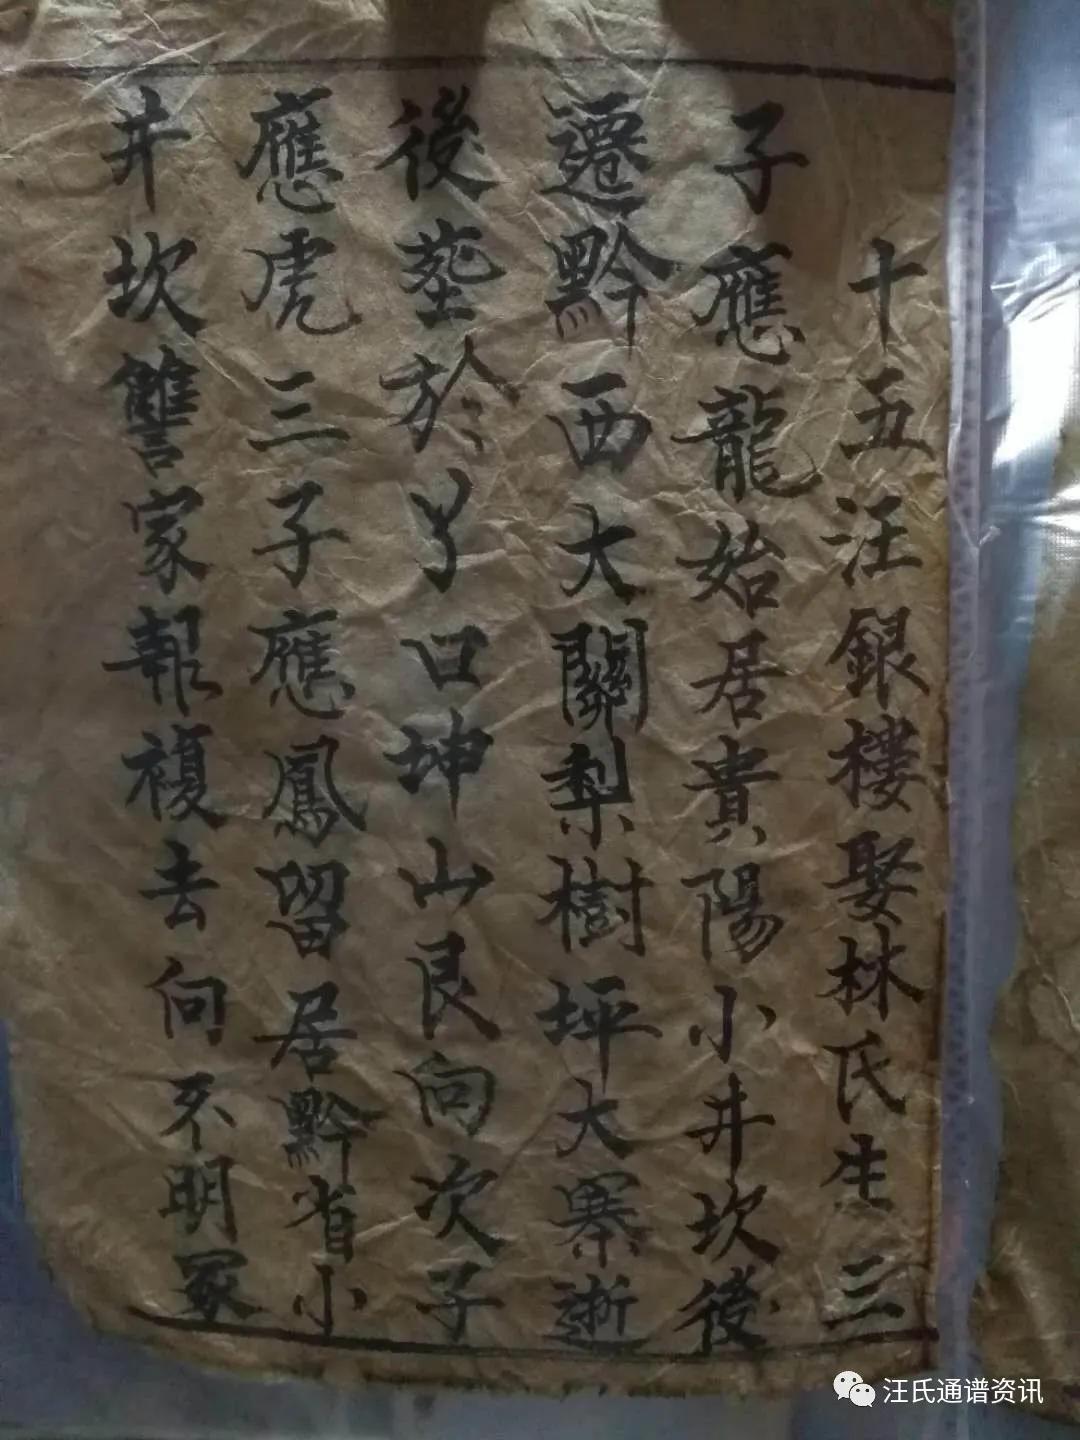 十五汪銀樓娶林氏生三
子應龍始居貴陽小井坎後
遷黔西大關梨樹坪大寨逝
後塟於丫口坤山艮向次子
應虎三子應鳳留居黔省小
井坎讐家報複去向不明冢
汪氏通谱资讯